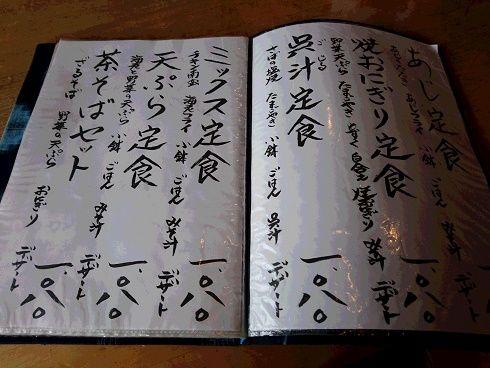 あじ定食
小鉢 ごはん みそ汁
デザート
一、〇八〇
焼おにぎり定食
野菜天ぷら たまごやき
焼おにぎり
みそ汁
デザート
一、〇八〇
呉汁定食
ごじる
さばの塩焼 たまごやき 小鉢 ごはん 呉汁
デザート
一、〇八〇
ミックス定食
チキン南蛮 海老フライ 小鉢 ごはん みそ汁
デザート
一、〇八〇
天ぷら定食
海老と野菜の天ぷら 小鉢 ごはん みそ汁
デザート
一、〇八〇
茶そばセット
ざるそば 野菜の天ぷら おにぎり
デザート
一、〇八〇